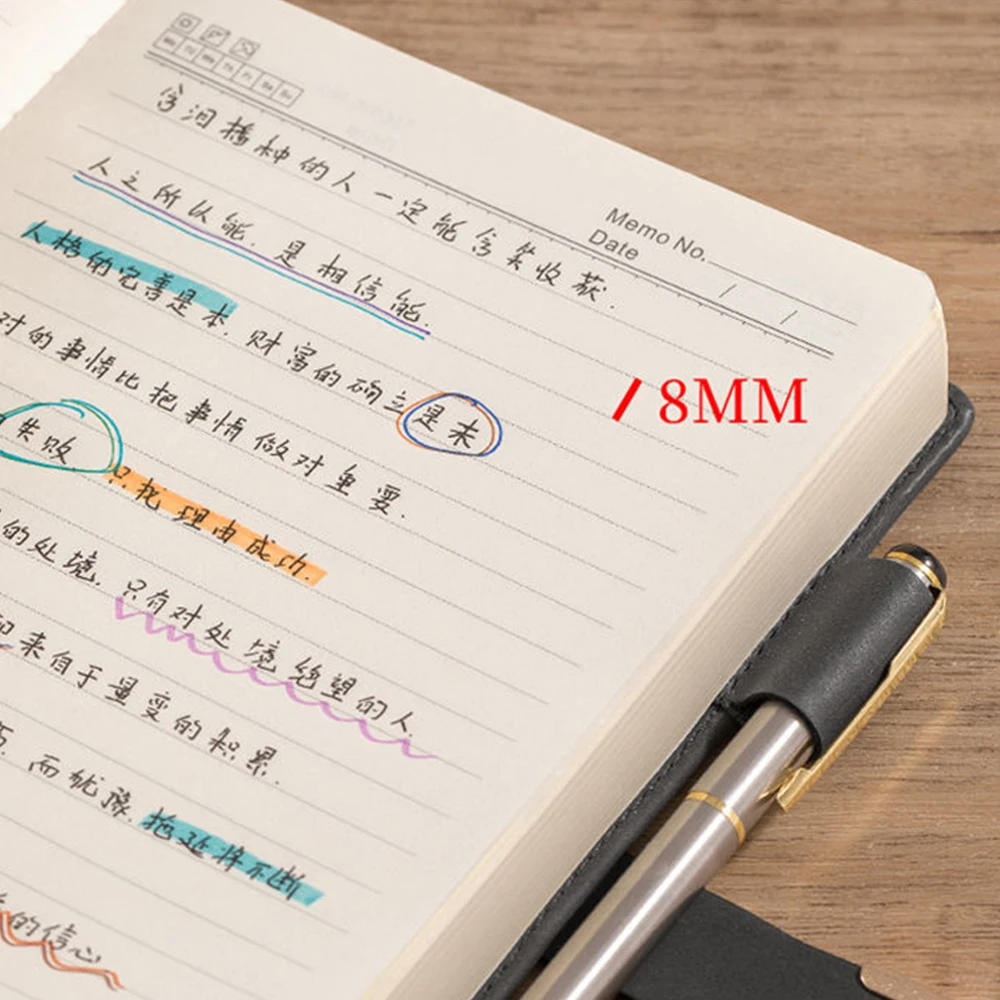 Mo Tu We Th Fr Sa Su
Memo No.
Date / /
含泪播种的人一定能含笑收获.
人之所以能.是相信能.
人格的完善是本.财富的确立是末
对的事情比把事情做对重要.
失败 只找理由成功.
的处境.只有对处境绝望的人.
来自于量变的积累.
而犹豫.拖延将不断
的信心
8MM